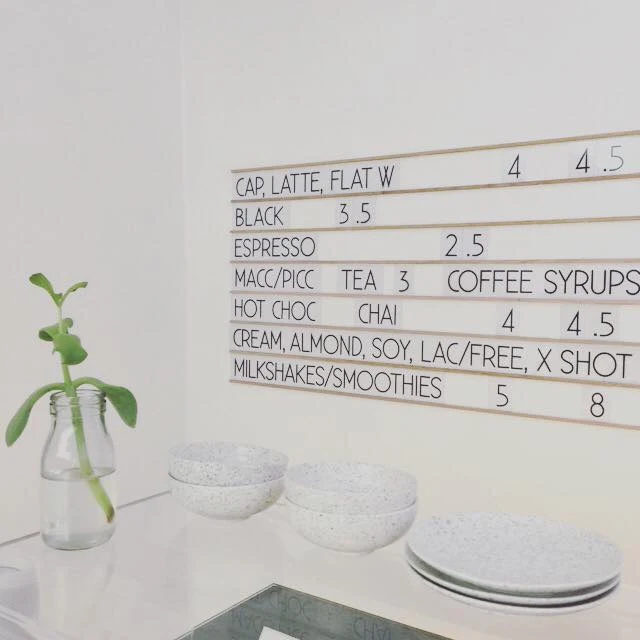 CAP, LATTE, FLAT W 4 4.5
BLACK 3.5
ESPRESSO 2.5
MACC/PICC TEA 3 COFFEE SYRUPS
HOT CHOC CHAI 4 4.5
CREAM, ALMOND, SOY, LAC/FREE, X SHOT
MILKSHAKES/SMOOTHIES 5 8
HOT CHOC CHAI